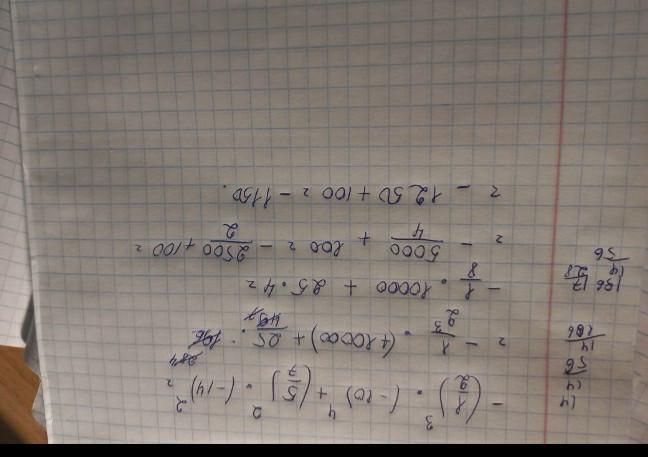 -(1/2)³ · (-10)⁴ + (5/7)² · (-14)² =
= -1/2³ · (+10000) + 25/49 · 196
-1/8 · 10000 + 25 · 4 =
= -5000/4 + 100 = -2500/2 + 100 =
= -1250 + 100 = -1150.
14
14
56
14
196
196 7
14 28
56